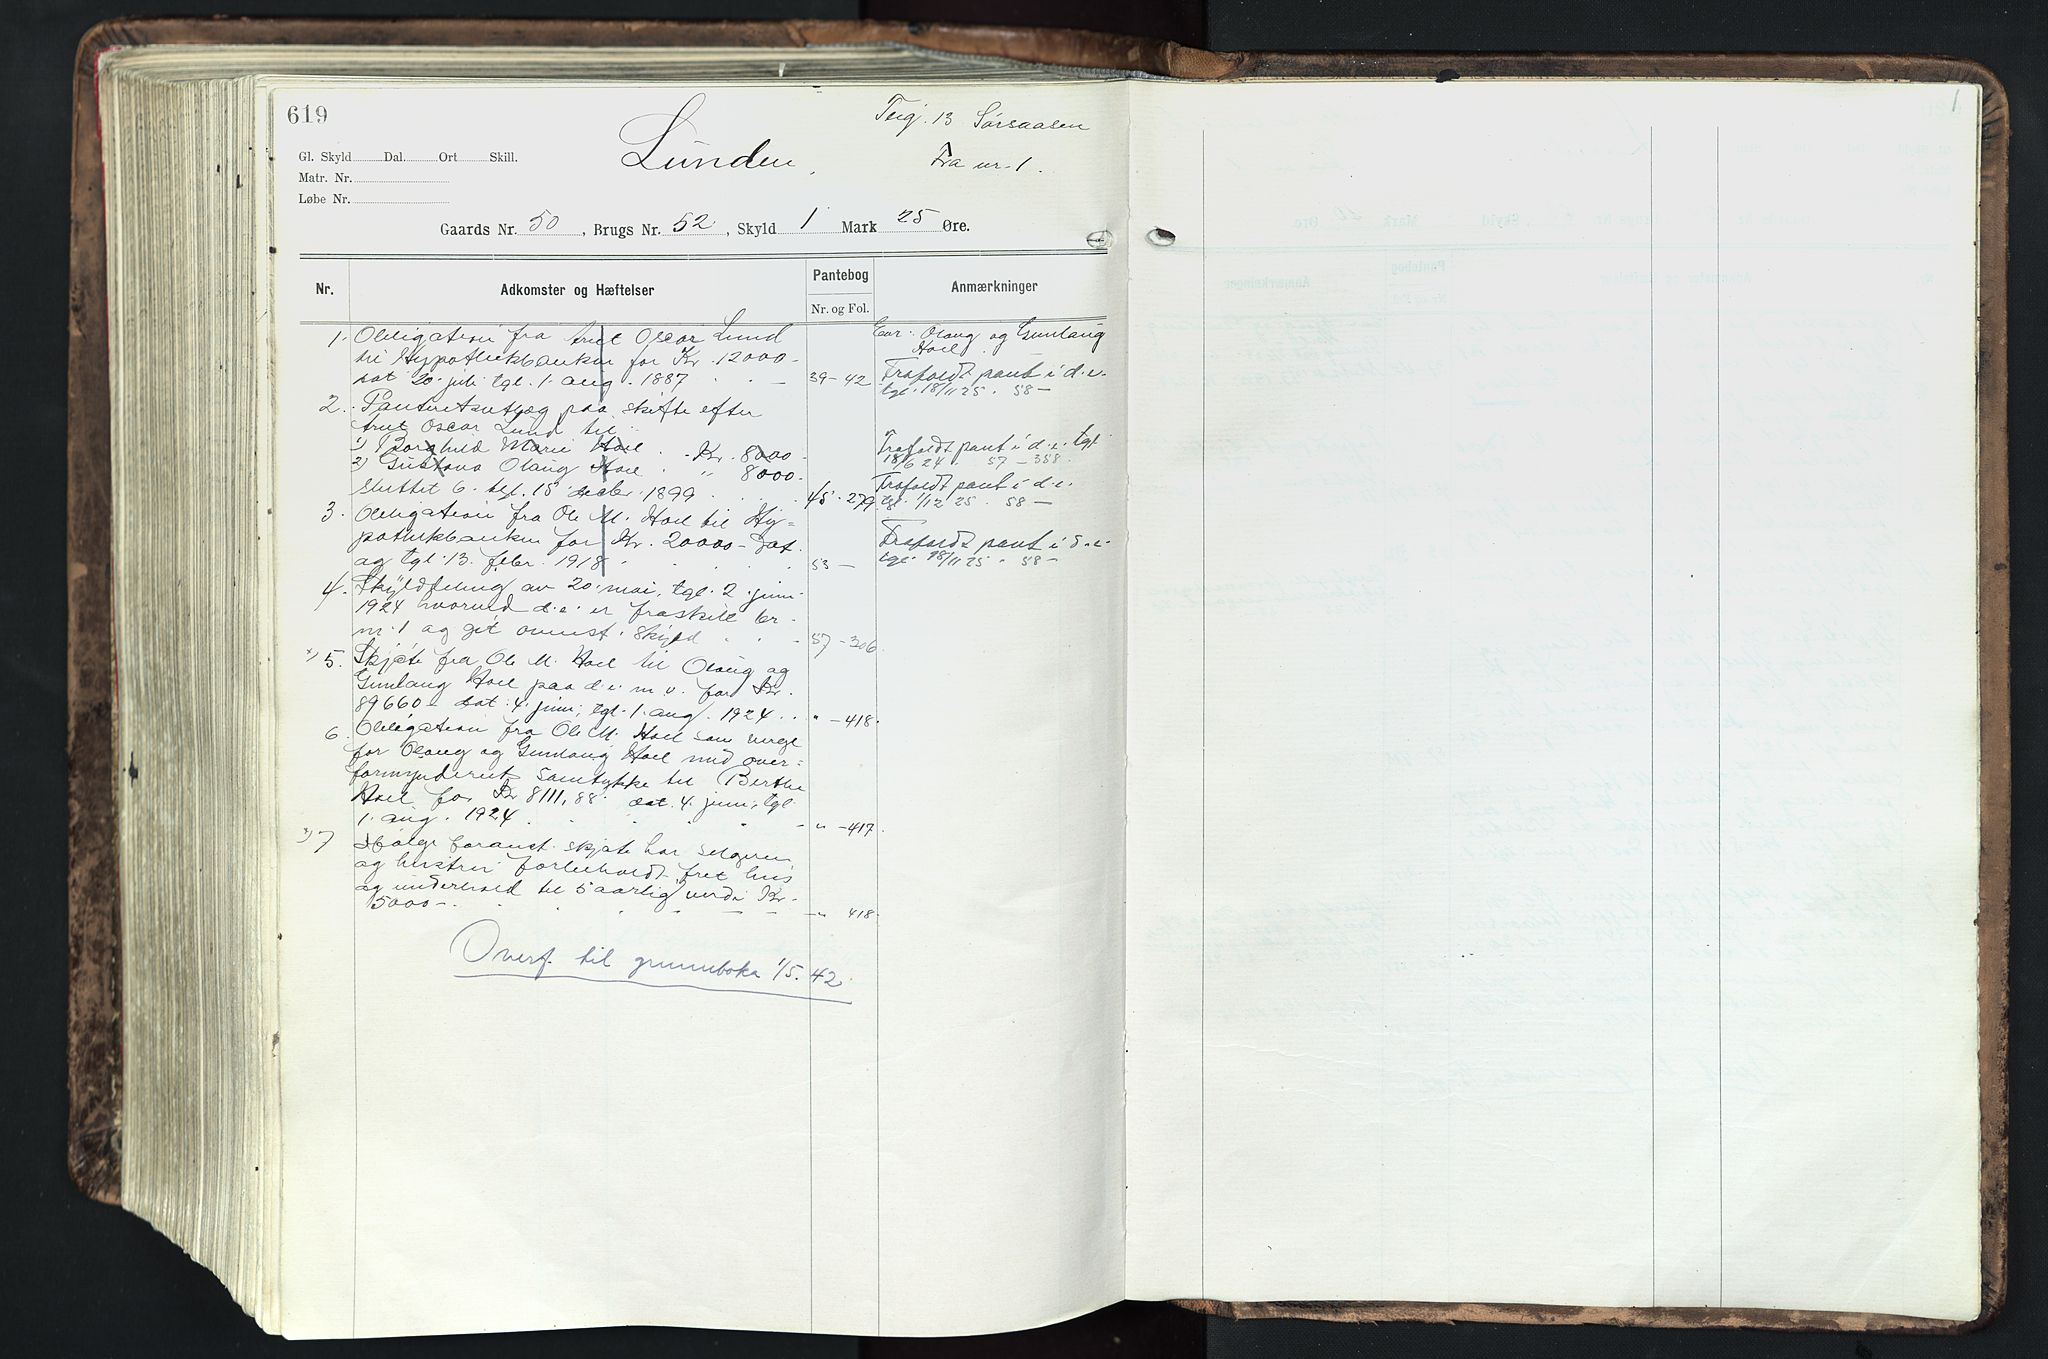 619
Teig. 13 Sørsaasen
Lunden
Fra nr. 1.
Gl. Skyld Dal. Ort Skill.
Matr. Nr.
Løbe Nr.
Gaards Nr. 50, Brugs Nr. 52, Skyld 1 Mark 25 Øre.
Nr. Adkomster og Hæftelser Pantebog Anmærkninger
Nr. og Fol.
Eier: Olaug og Gunlaug
Hoel.
1. Obligation fra Oscar Lund
til Hypothekbanken for Kr. 12000-
dat 20. juli tgl. 1. aug. 1887 39-42 Frafaldt pant i d.e.
tgl. 18/11 25. 58-
2. Panteretsutlæg paa skifte efter
Oscar Lund til
1) Borghild Marie Hoel . Kr. 8000- Frafaldt pant i d.e. tgl.
18/6 24. 57-358.
2) Gustava Olaug Hoel . " 8000-
sluttet 6. tgl. 15 decbr. 1899 45-279 Frafaldt pant i d.e.
tgl. 1/12 25. 58-
3. Obligation fra Ole M. Hoel til Hy-
pothekbanken for Kr. 20000- dat. Frafaldt pant i d.e.
og tgl. 13. febr. 1918 53- tgl. 18/11 25. 58-
4. Skylddeling av 20. mai, tgl. 2. juni
1924 hvorved d.e. er fraskilt br.
nr. 1 og git ovenst. skyld 57-306
x) 5. Skjøte fra Ole M. Hoel til Olaug og
Gunlaug Hoel paa d.e. m.v. for Kr.
89660- dat. 4. juni, tgl. 1. aug. 1924 " -418.
6. Obligation fra Ole M. Hoel som verge
for Olaug og Gunlaug Hoel med over-
formynderiets samtykke til Berthe
Hoel for Kr 8111,88. dat. 4. juni, tgl.
1. aug. 1924 " -417.
x) 7 Ifølge foranst. skjøte har selgeren
og hustru forbeholdt frit hus
og underhold til 5 aarlig verdi Kr.
5000- " 418.
Overf. til grunnboka 1/5. 42.
1